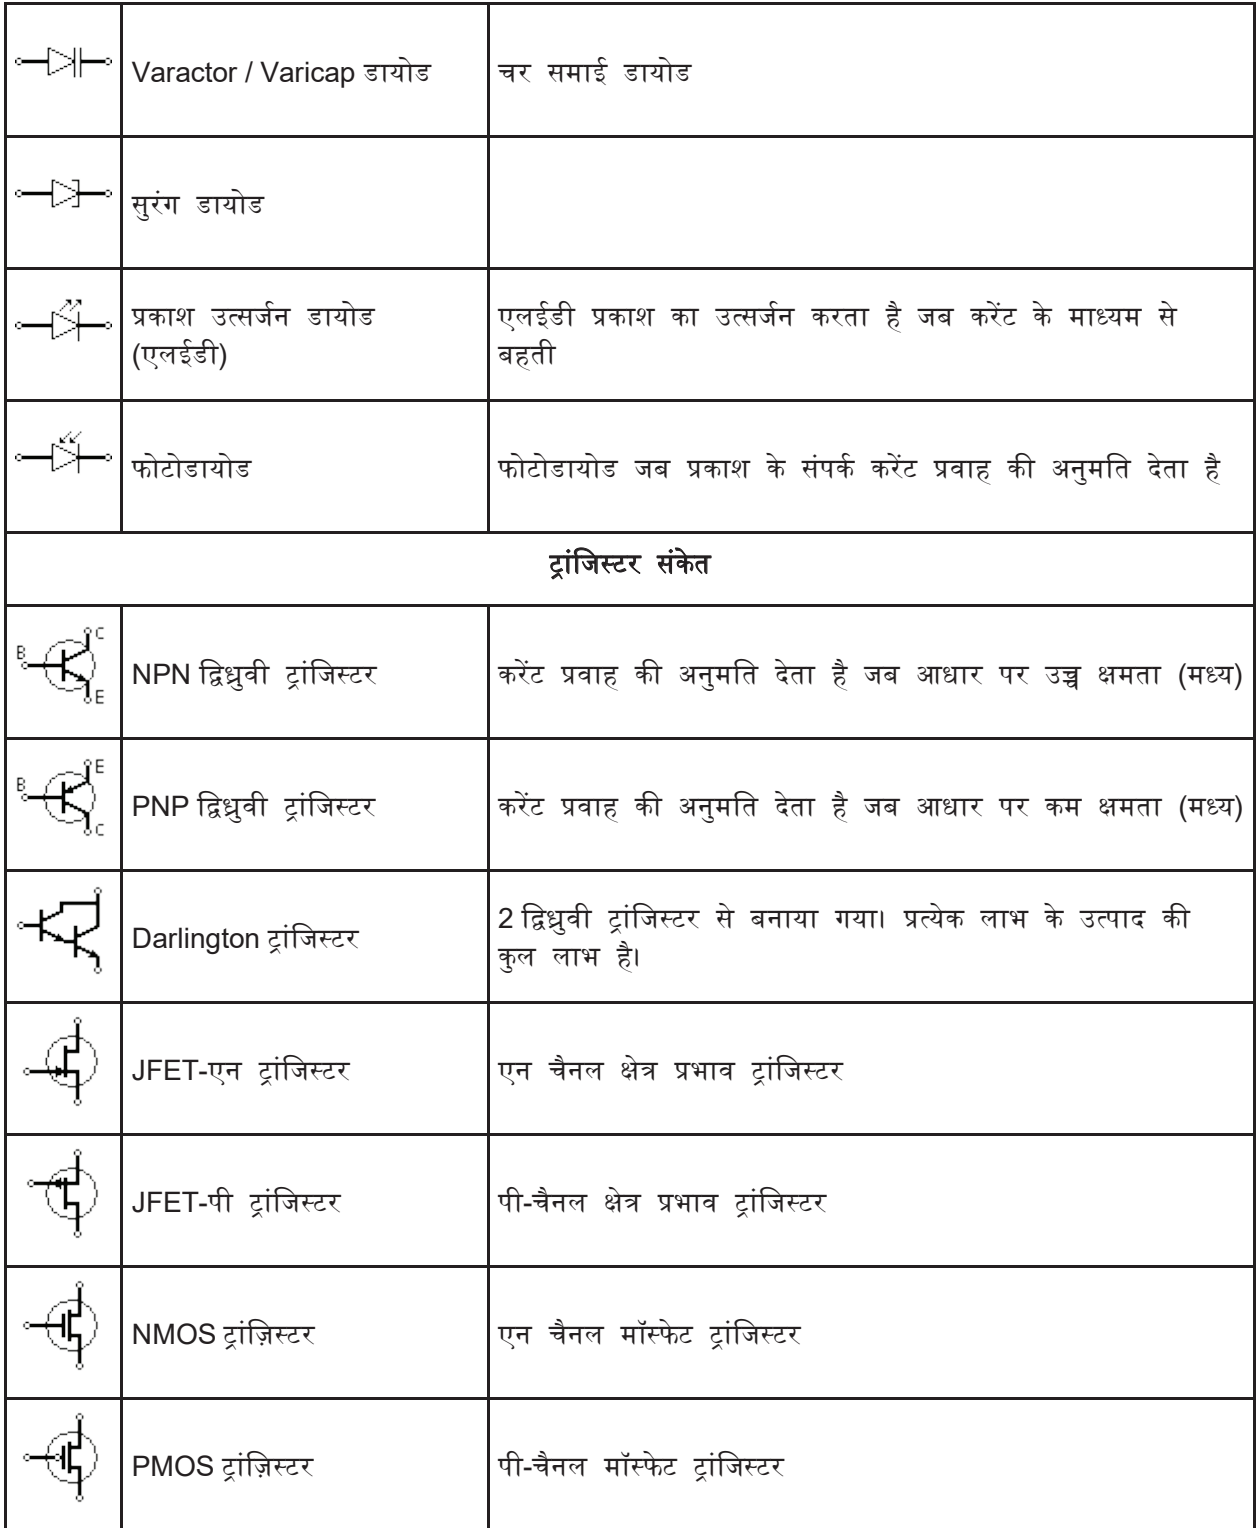 Varactor / Varicap डायोड
चर समाई डायोड
सुरंग डायोड
प्रकाश उत्सर्जन डायोड
(एलईडी)
एलईडी प्रकाश का उत्सर्जन करता है जब करेंट के माध्यम से
बहती
फोटोडायोड
फोटोडायोड जब प्रकाश के संपर्क करेंट प्रवाह की अनुमति देता है
ट्रांजिस्टर संकेत
B C E
NPN द्विध्रुवी ट्रांजिस्टर
करेंट प्रवाह की अनुमति देता है जब आधार पर उच्च क्षमता (मध्य)
B E C
PNP द्विध्रुवी ट्रांजिस्टर
करेंट प्रवाह की अनुमति देता है जब आधार पर कम क्षमता (मध्य)
Darlington ट्रांजिस्टर
2 द्विध्रुवी ट्रांजिस्टर से बनाया गया। प्रत्येक लाभ के उत्पाद की
कुल लाभ है।
JFET-एन ट्रांजिस्टर
एन चैनल क्षेत्र प्रभाव ट्रांजिस्टर
JFET-पी ट्रांजिस्टर
पी-चैनल क्षेत्र प्रभाव ट्रांजिस्टर
NMOS ट्रांज़िस्टर
एन चैनल मॉस्फेट ट्रांजिस्टर
PMOS ट्रांज़िस्टर
पी-चैनल मॉस्फेट ट्रांजिस्टर